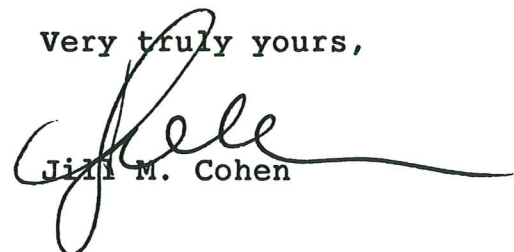 Very truly yours,
Jill M. Cohen